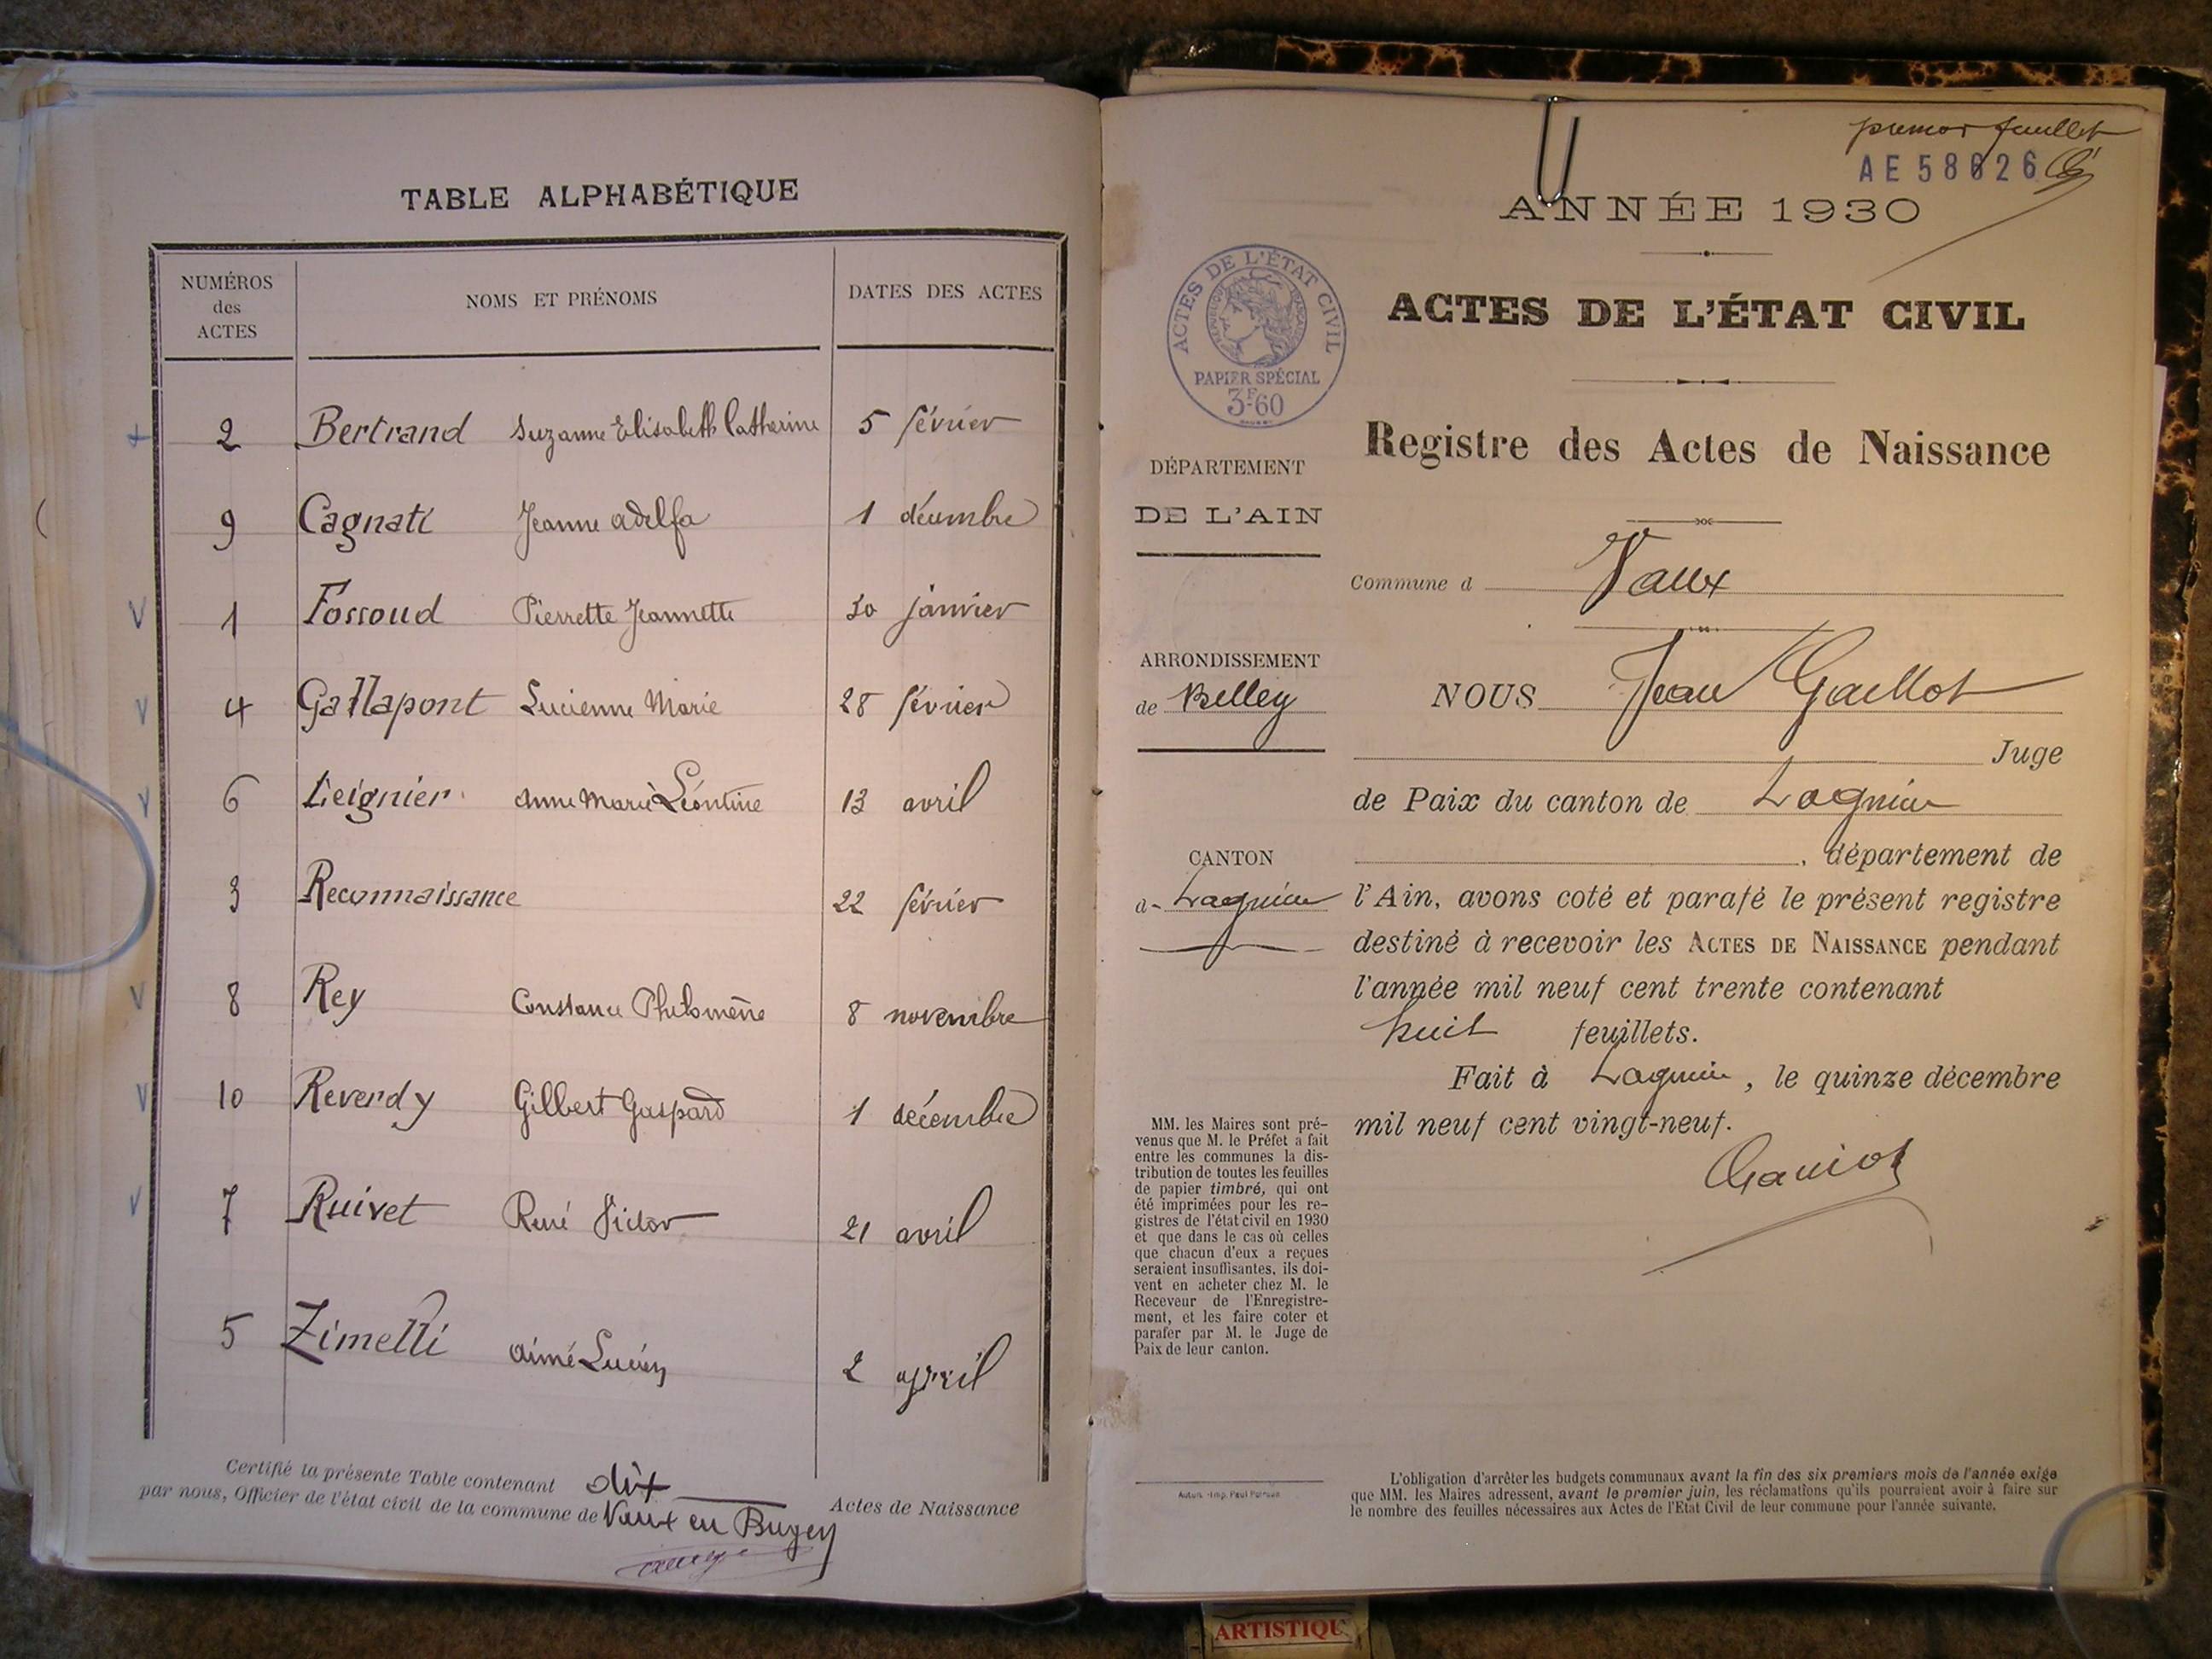 TABLE ALPHABÉTIQUE
NUMÉROS
des
ACTES
NOMS ET PRÉNOMS
DATES DES ACTES
2 Bertrand Suzanne Elisabeth Catherine 5 février
9 Cagnati Jeanne Adelfa 1 décembre
1 Fossoud Pierrette Jeannette 30 janvier
4 Gallapont Lucienne Marie 28 février
6 Leignier Anne Marie Léontine 13 avril
3 Reconnaissance 22 février
8 Rey Constance Philomène 8 novembre
10 Reverdy Gilbert Gaspard 1 décembre
7 Ruivet René Victor 21 avril
5 Zimelli Aimé Lucien 2 avril
Certifié la présente Table contenant dix Actes de Naissance
par nous, Officier de l'état civil de la commune de Vaux en Bugey
premier feuillet
AE 58626
ANNÉE 1930
ACTES DE L'ÉTAT CIVIL
PAPIER SPÉCIAL
3F60
ACTES DE L'ÉTAT CIVIL
Registre des Actes de Naissance
DÉPARTEMENT
DE L'AIN
Commune d Vaux
ARRONDISSEMENT
de Belley
CANTON
d- Lagnieu
NOUS Jean Gaillot
Juge
de Paix du canton de Lagnieu
, département de
l'Ain, avons coté et parafé le présent registre
destiné à recevoir les ACTES DE NAISSANCE pendant
l'année mil neuf cent trente contenant
huit feuillets.
Fait à Lagnieu, le quinze décembre
mil neuf cent vingt-neuf.
MM. les Maires sont pré-
venus que M. le Préfet a fait
entre les communes la dis-
tribution de toutes les feuilles
de papier timbré, qui ont
été imprimées pour les re-
gistres de l'état civil en 1930
et que dans le cas où celles
que chacun d'eux a reçues
seraient insuffisantes, ils doi-
vent en acheter chez M. le
Receveur de l'Enregistre-
ment, et les faire coter et
parafer par M. le Juge de
Paix de leur canton.
L'obligation d'arrêter les budgets communaux avant la fin des six premiers mois de l'année exige
que MM. les Maires adressent, avant le premier juin, les réclamations qu'ils pourraient avoir à faire sur
le nombre des feuilles nécessaires aux Actes de l'Etat Civil de leur commune pour l'année suivante.
ARTISTIQU